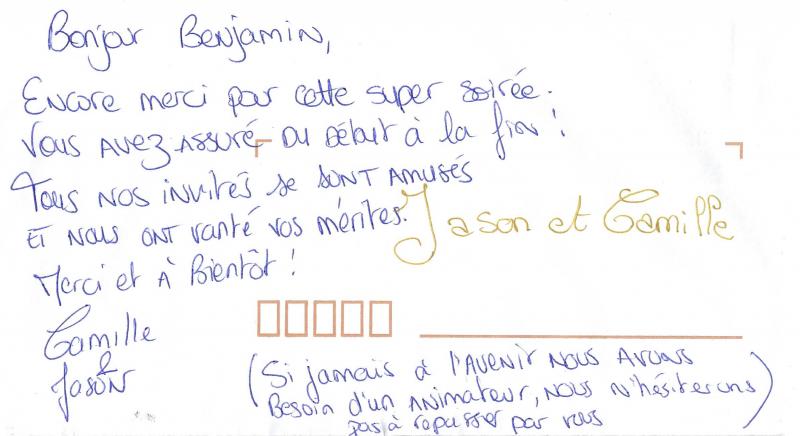 Bonjour Benjamin,
Encore merci pour cette super soirée.
Vous avez assuré du début à la fin !
Tous nos invités se sont amusés
et nous ont vanté vos mérites.
Jason et Camille
Merci et à bientôt !
Camille
&
Jason
(Si jamais à l'avenir nous avons
besoin d'un animateur, nous n'hésiterons
pas à repasser par vous)